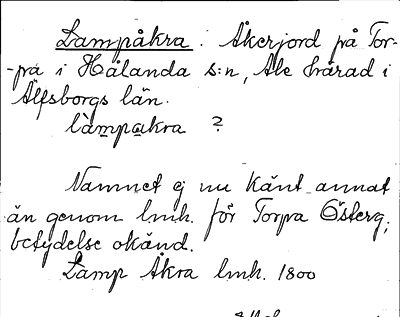 Lampåkra. Åkerjord på Tor-
-pa i Hålanda s:n, Ale härad i
Älfsborgs län.
làmpakra ?
Namnet ej nu känt annat
än genom lmh. för Torpa Österg.;
betydelse okänd.
Lamp Åkra lmh. 1800